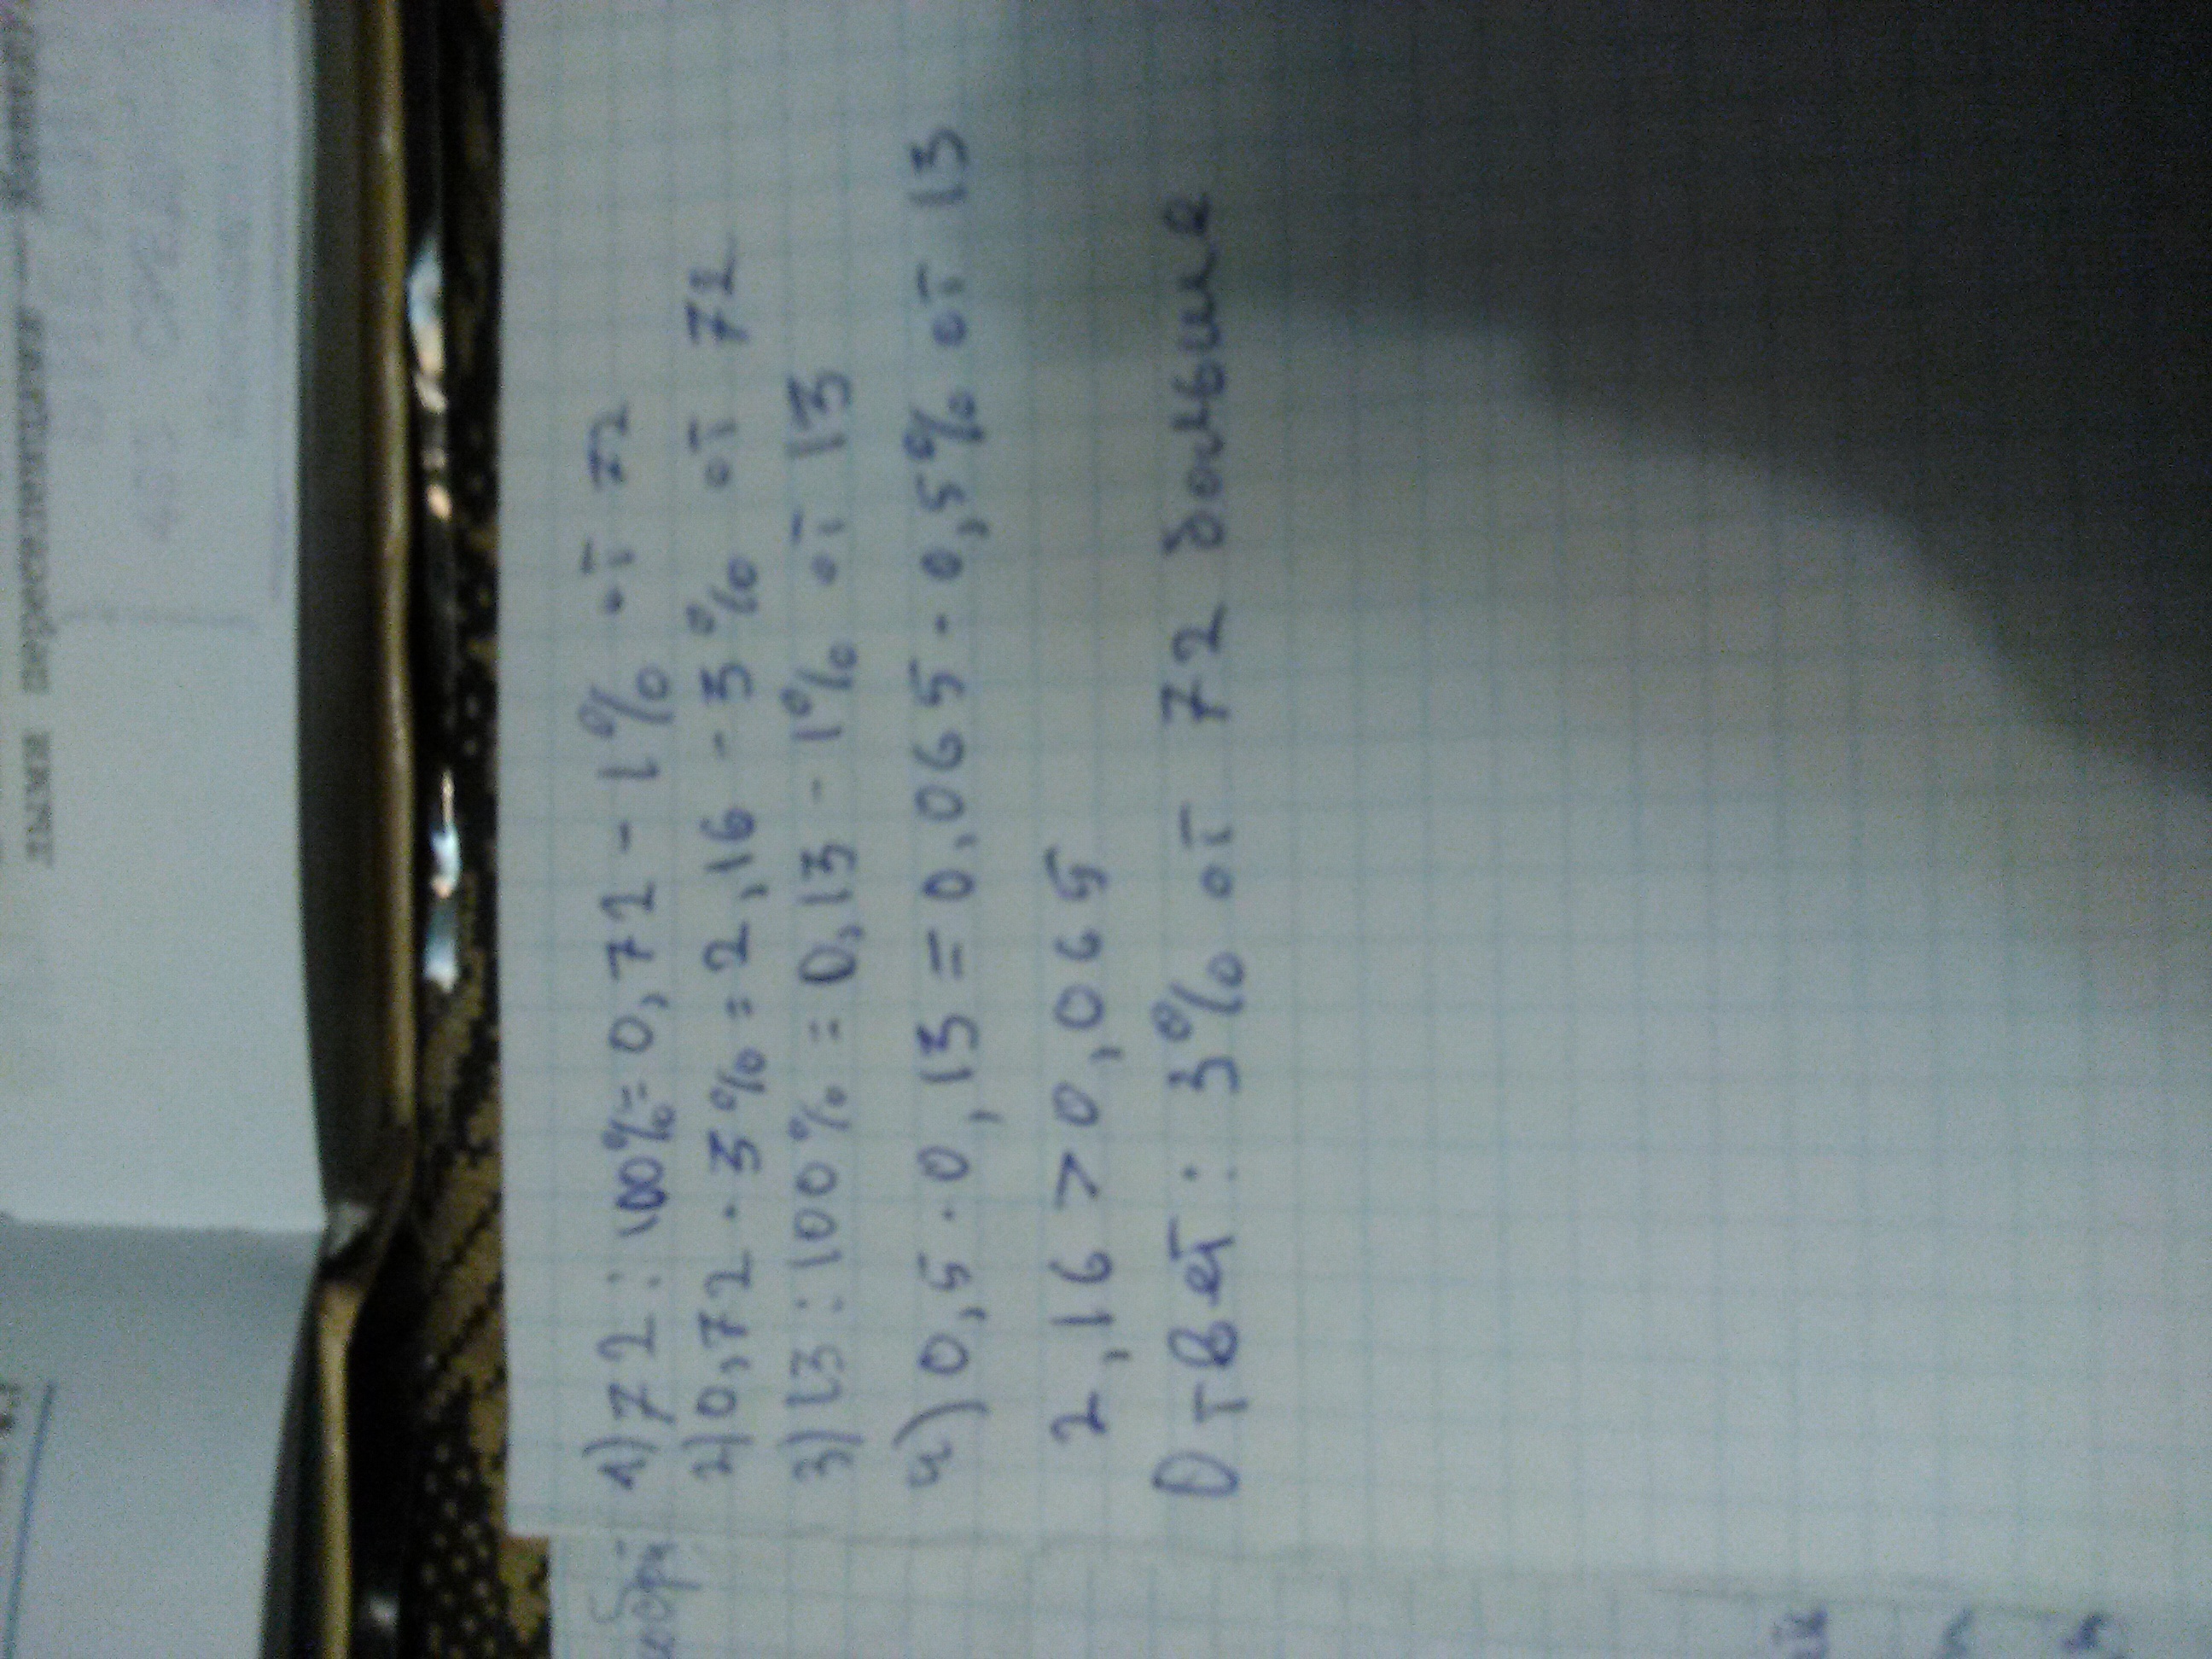 1) 72 : 100% = 0,72 - 1% от 72
2) 0,72 · 3% = 2,16 - 3% от 72
3) 13 : 100% = 0,13 - 1% от 13
4) 0,5 · 0,13 = 0,065 - 0,5% от 13
2,16 > 0,065
Ответ: 3% от 72 больше